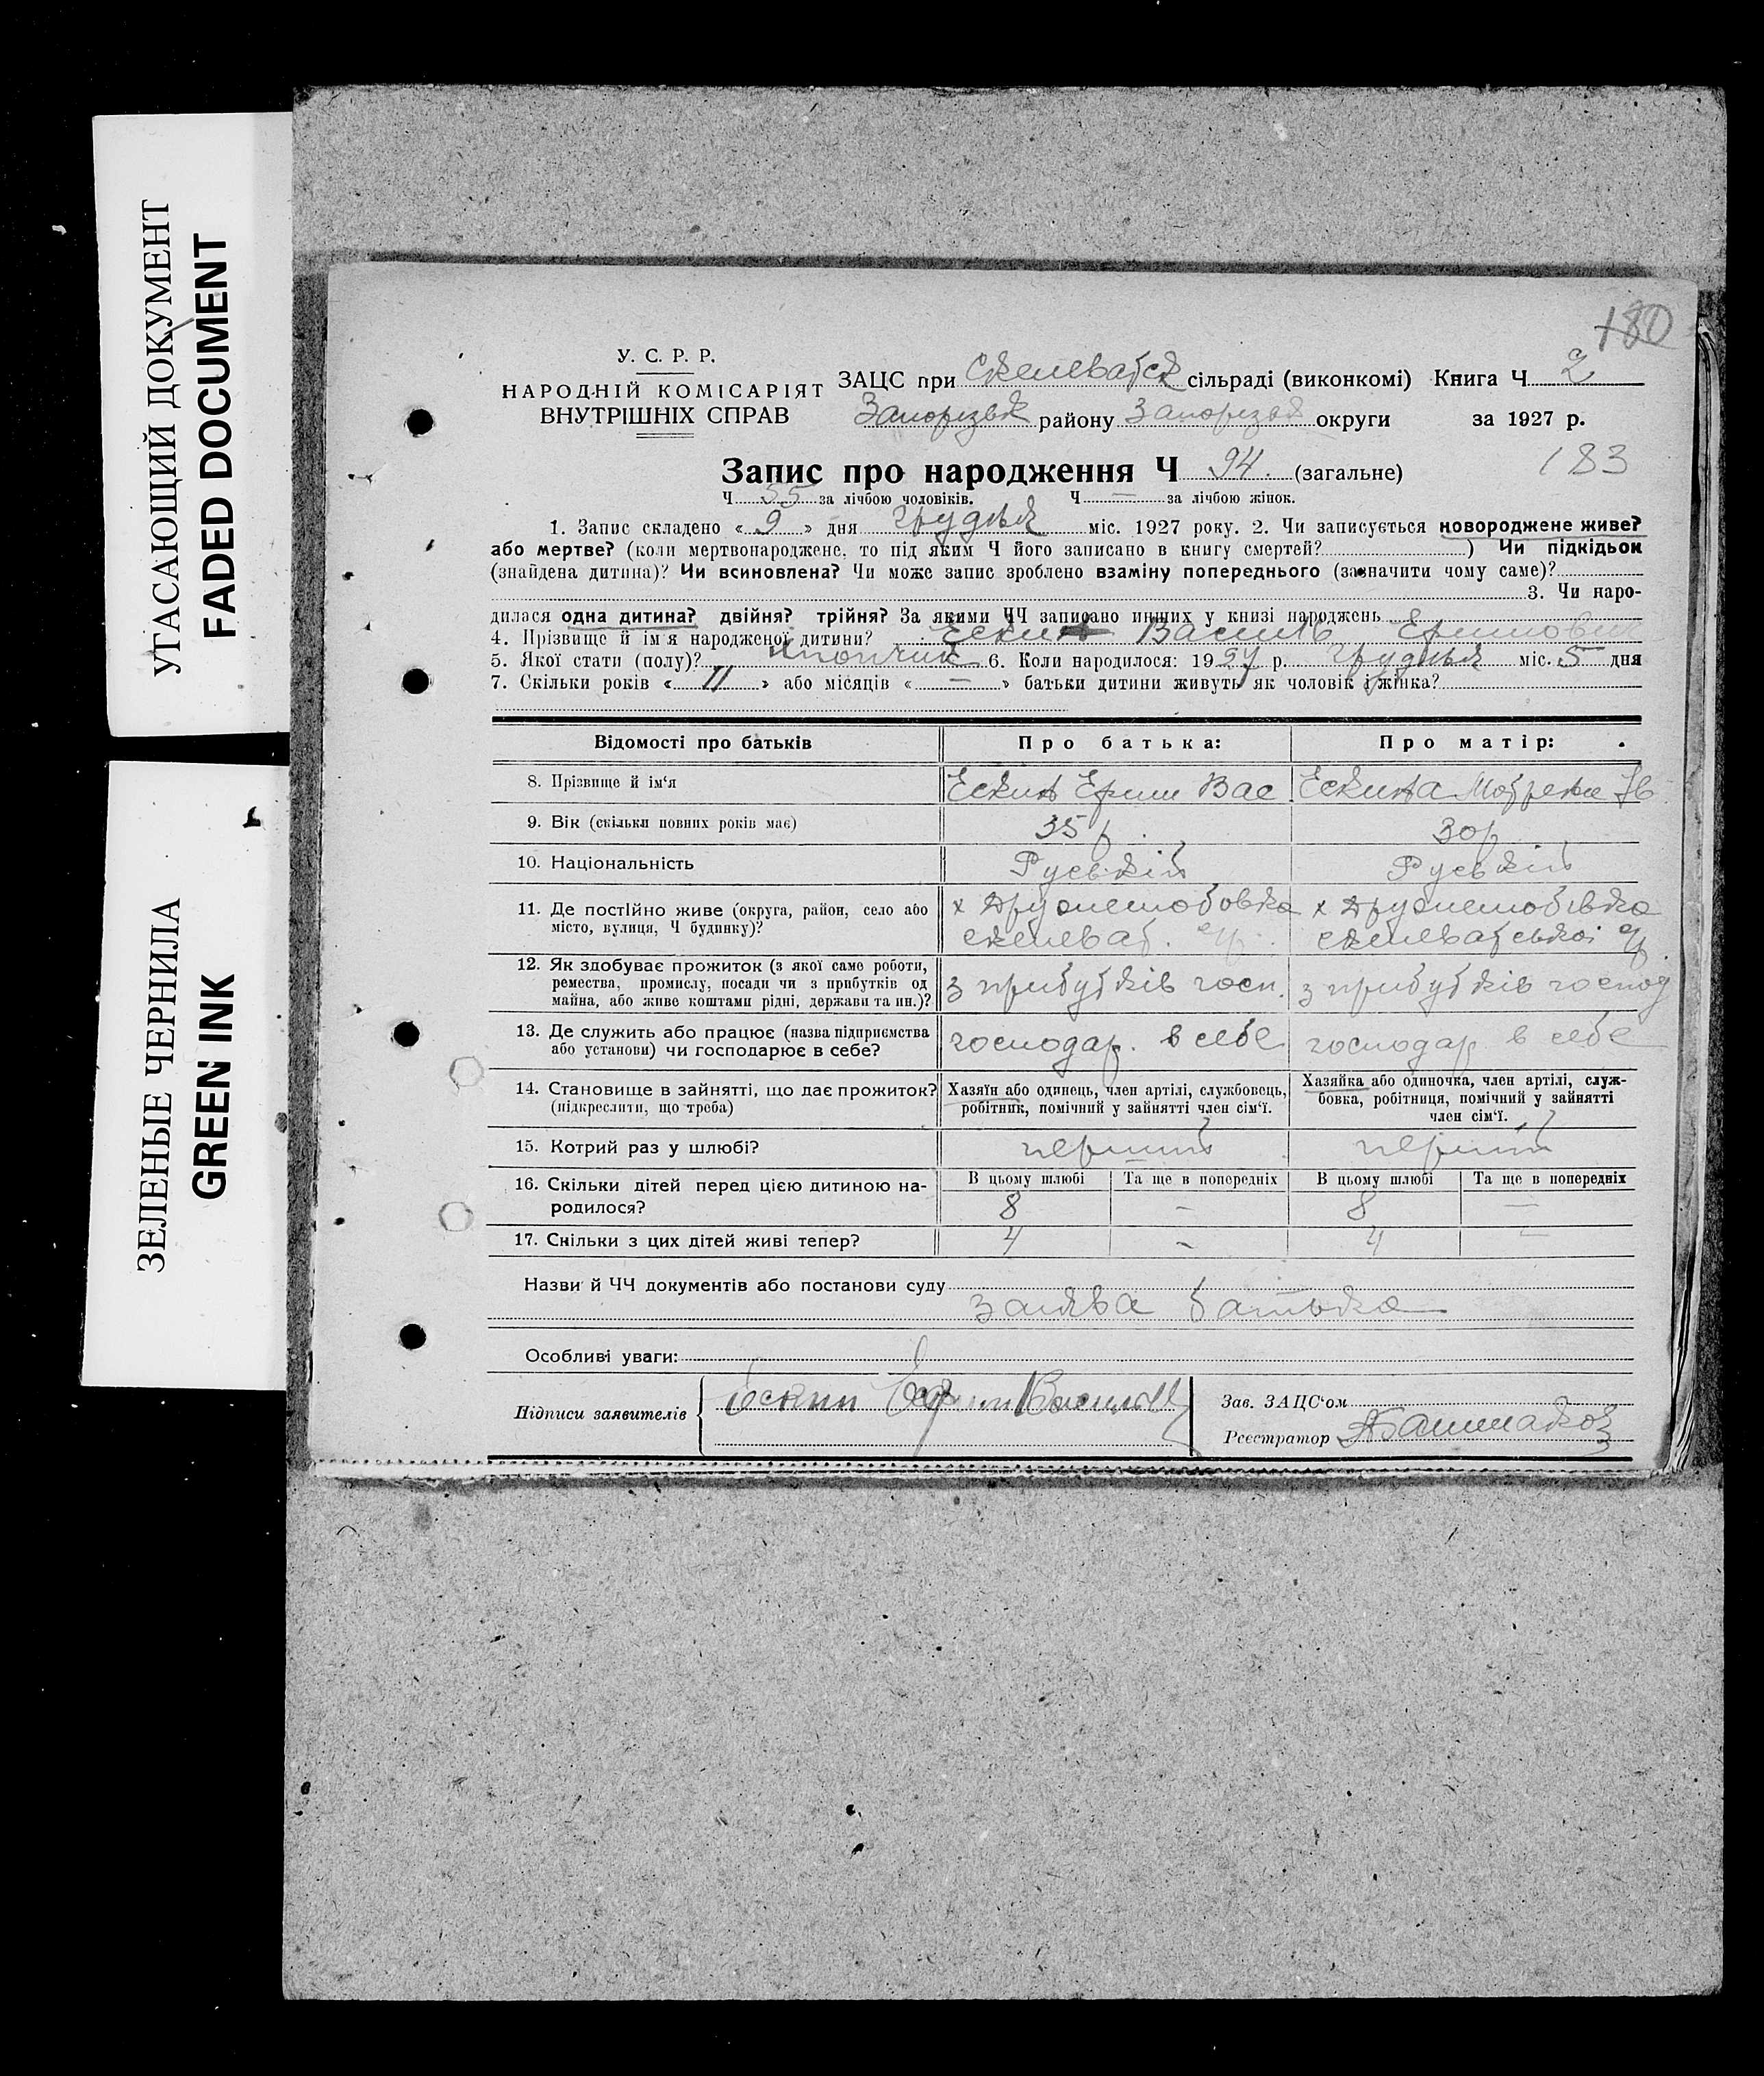 УГАСАЮЩИЙ ДОКУМЕНТ
FADED DOCUMENT
ЗЕЛЕНЫЕ ЧЕРНИЛА
GREEN INK
180
У. С. Р. Р.
НАРОДНІЙ КОМІСАРІЯТ
ВНУТРІШНІХ СПРАВ
ЗАЦС при Скелеватск сільраді (виконкомі) Книга Ч 2
Запорізьк району Запорізьк округи за 1927 р.
183
Запис про народження Ч 94. (загальне)
Ч 55 за лічбою чоловіків. Ч — за лічбою жінок.
1. Запис складено « 9 » дня грудня міс. 1927 року. 2. Чи записується новороджене живе?
або мертве? (коли мертвонароджене, то під яким Ч його записано в книгу смертей? ) Чи підкідьок
(знайдена дитина)? Чи всиновлена? Чи може запис зроблено взаміну попереднього (зазначити чому саме)?
3. Чи наро-
дилася одна дитина? двійня? трійня? За якими ЧЧ записано инших у книзі народжень
4. Прізвище й ім'я народженої дитини? Ескин Василь
5. Якої стати (полу)? хлопчик 6. Коли народилося: 1927 р. грудня міс. 5 дня
7. Скільки років « 11 » або місяців « — » батьки дитини живуть як чоловік і жінка?
Відомості про батьків
Про батька:
Про матір:
8. Прізвище й ім'я
Ескин Ефим Вас
Ескина Мотрена
9. Вік (скільки повних років має)
35 р.
30 р
10. Національність
Руській
Руській
11. Де постійно живе (округа, район, село або
місто, вулиця, Ч будинку)?
х Дружелюбовка
скелеват.
х Дружелюбівка
скелеватської
12. Як здобуває прожиток (з якої саме роботи,
ремества, промислу, посади чи з прибутків од
майна, або живе коштами рідні, держави та ин.)?
з прибутків госп.
з прибутків господ
13. Де служить або працює (назва підприємства
або установи) чи господарює в себе?
господар. в себе
господар в себе
14. Становище в зайнятті, що дає прожиток?
(підкреслити, що треба)
Хазяїн або одинець, член артілі, службовець,
робітник, помічний у зайнятті член сім'ї.
Хазяйка або одиночка, член артілі, служ-
бовка, робітниця, помічний у зайнятті
член сім'ї.
15. Котрий раз у шлюбі?
перший
перший
16. Скільки дітей перед цією дитиною на-
родилося?
В цьому шлюбі Та ще в попередніх В цьому шлюбі Та ще в попередніх
8 - 8 —
17. Скільки з цих дітей живі тепер?
4 - 4 —
Назви й ЧЧ документів або постанови суду
заява батька
Особливі уваги:
Підписи заявителів
Ескин Ефим
Зав. ЗАЦС'ом
Реєстратор